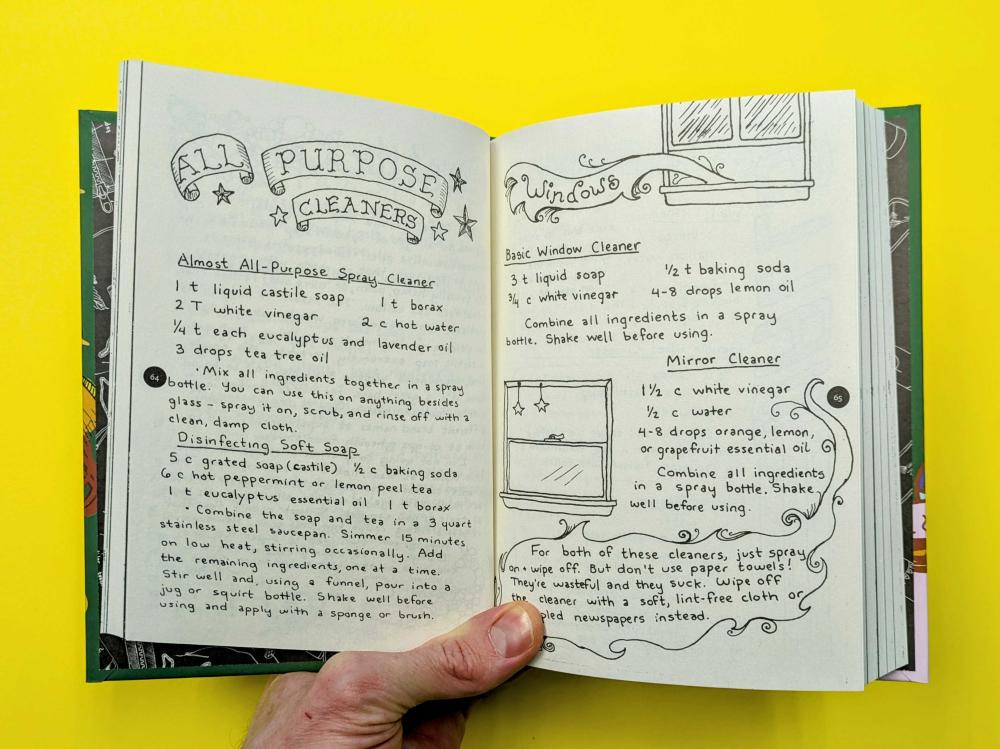 ALL PURPOSE
CLEANERS
Almost All-Purpose Spray Cleaner
1 t liquid castile soap 1 t borax
2 T white vinegar 2 c hot water
1/4 t each eucalyptus and lavender oil
3 drops tea tree oil
• Mix all ingredients together in a spray
bottle. You can use this on anything besides
glass - spray it on, scrub, and rinse off with a
clean, damp cloth.
Disinfecting Soft Soap
5 c grated soap (castile) 1/2 c baking soda
6 c hot peppermint or lemon peel tea
1 t eucalyptus essential oil 1 t borax
• Combine the soap and tea in a 3 quart
stainless steel saucepan. Simmer 15 minutes
on low heat, stirring occasionally. Add
the remaining ingredients, one at a time.
Stir well and, using a funnel, pour into a
jug or squirt bottle. Shake well before
using and apply with a sponge or brush.
64
Windows
Basic Window Cleaner
3 t liquid soap 1/2 t baking soda
3/4 c white vinegar 4-8 drops lemon oil
Combine all ingredients in a spray
bottle. Shake well before using.
Mirror Cleaner
1 1/2 c white vinegar
1/2 c water
4-8 drops orange, lemon,
or grapefruit essential oil
Combine all ingredients
in a spray bottle. Shake
well before using.
65
For both of these cleaners, just spray
on + wipe off. But don't use paper towels!
They're wasteful and they suck. Wipe off
the cleaner with a soft, lint-free cloth or
newspapers instead.